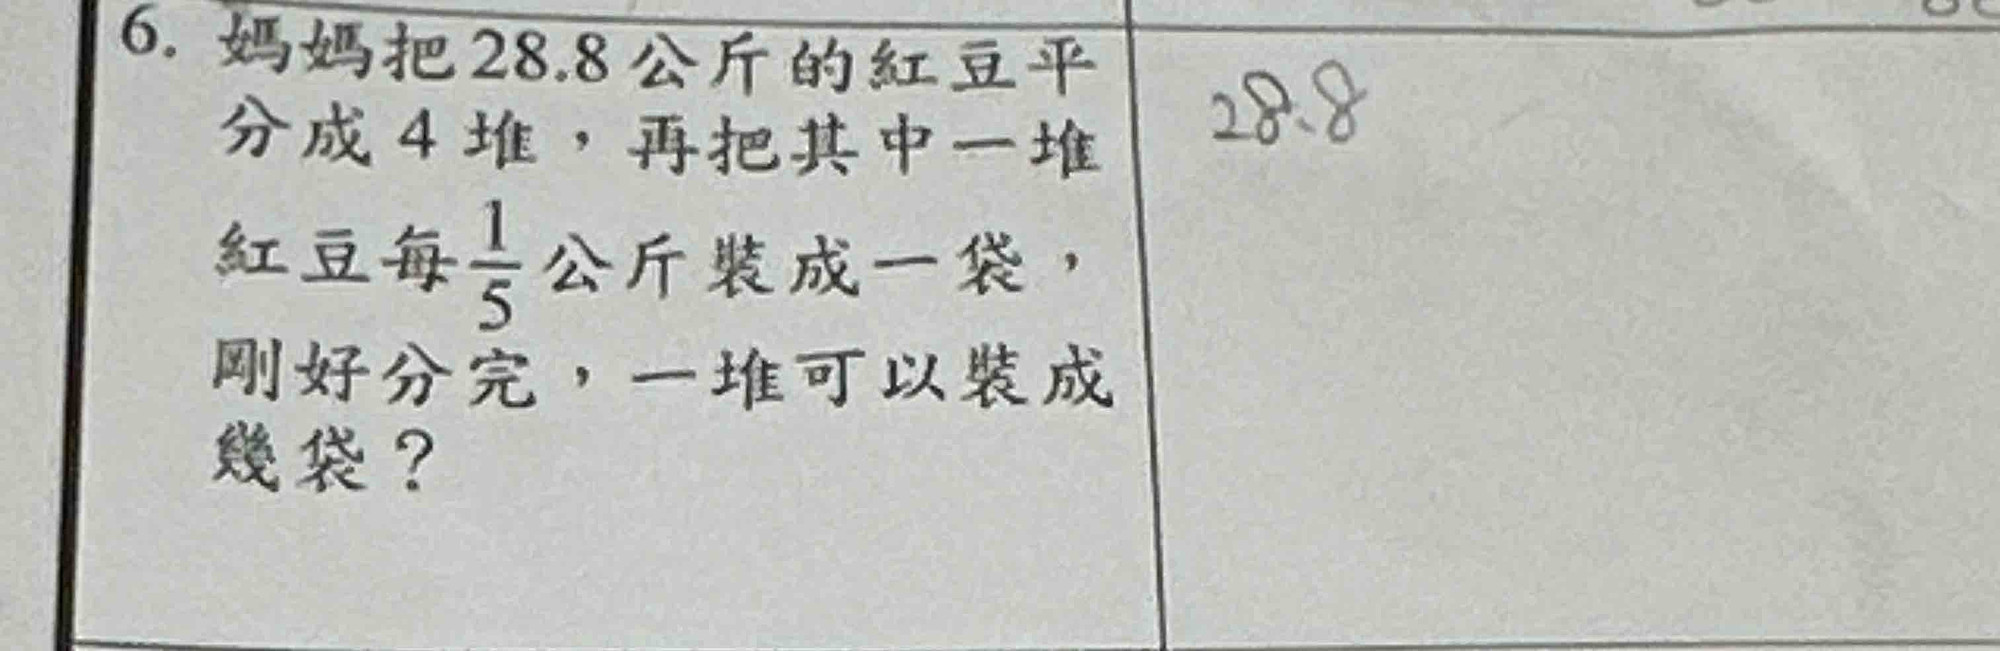 6. 媽媽把28.8公斤的紅豆平
分成4堆，再把其中一堆
紅豆每1/5公斤裝成一袋，
剛好分完，一堆可以裝成
幾袋？
28.8